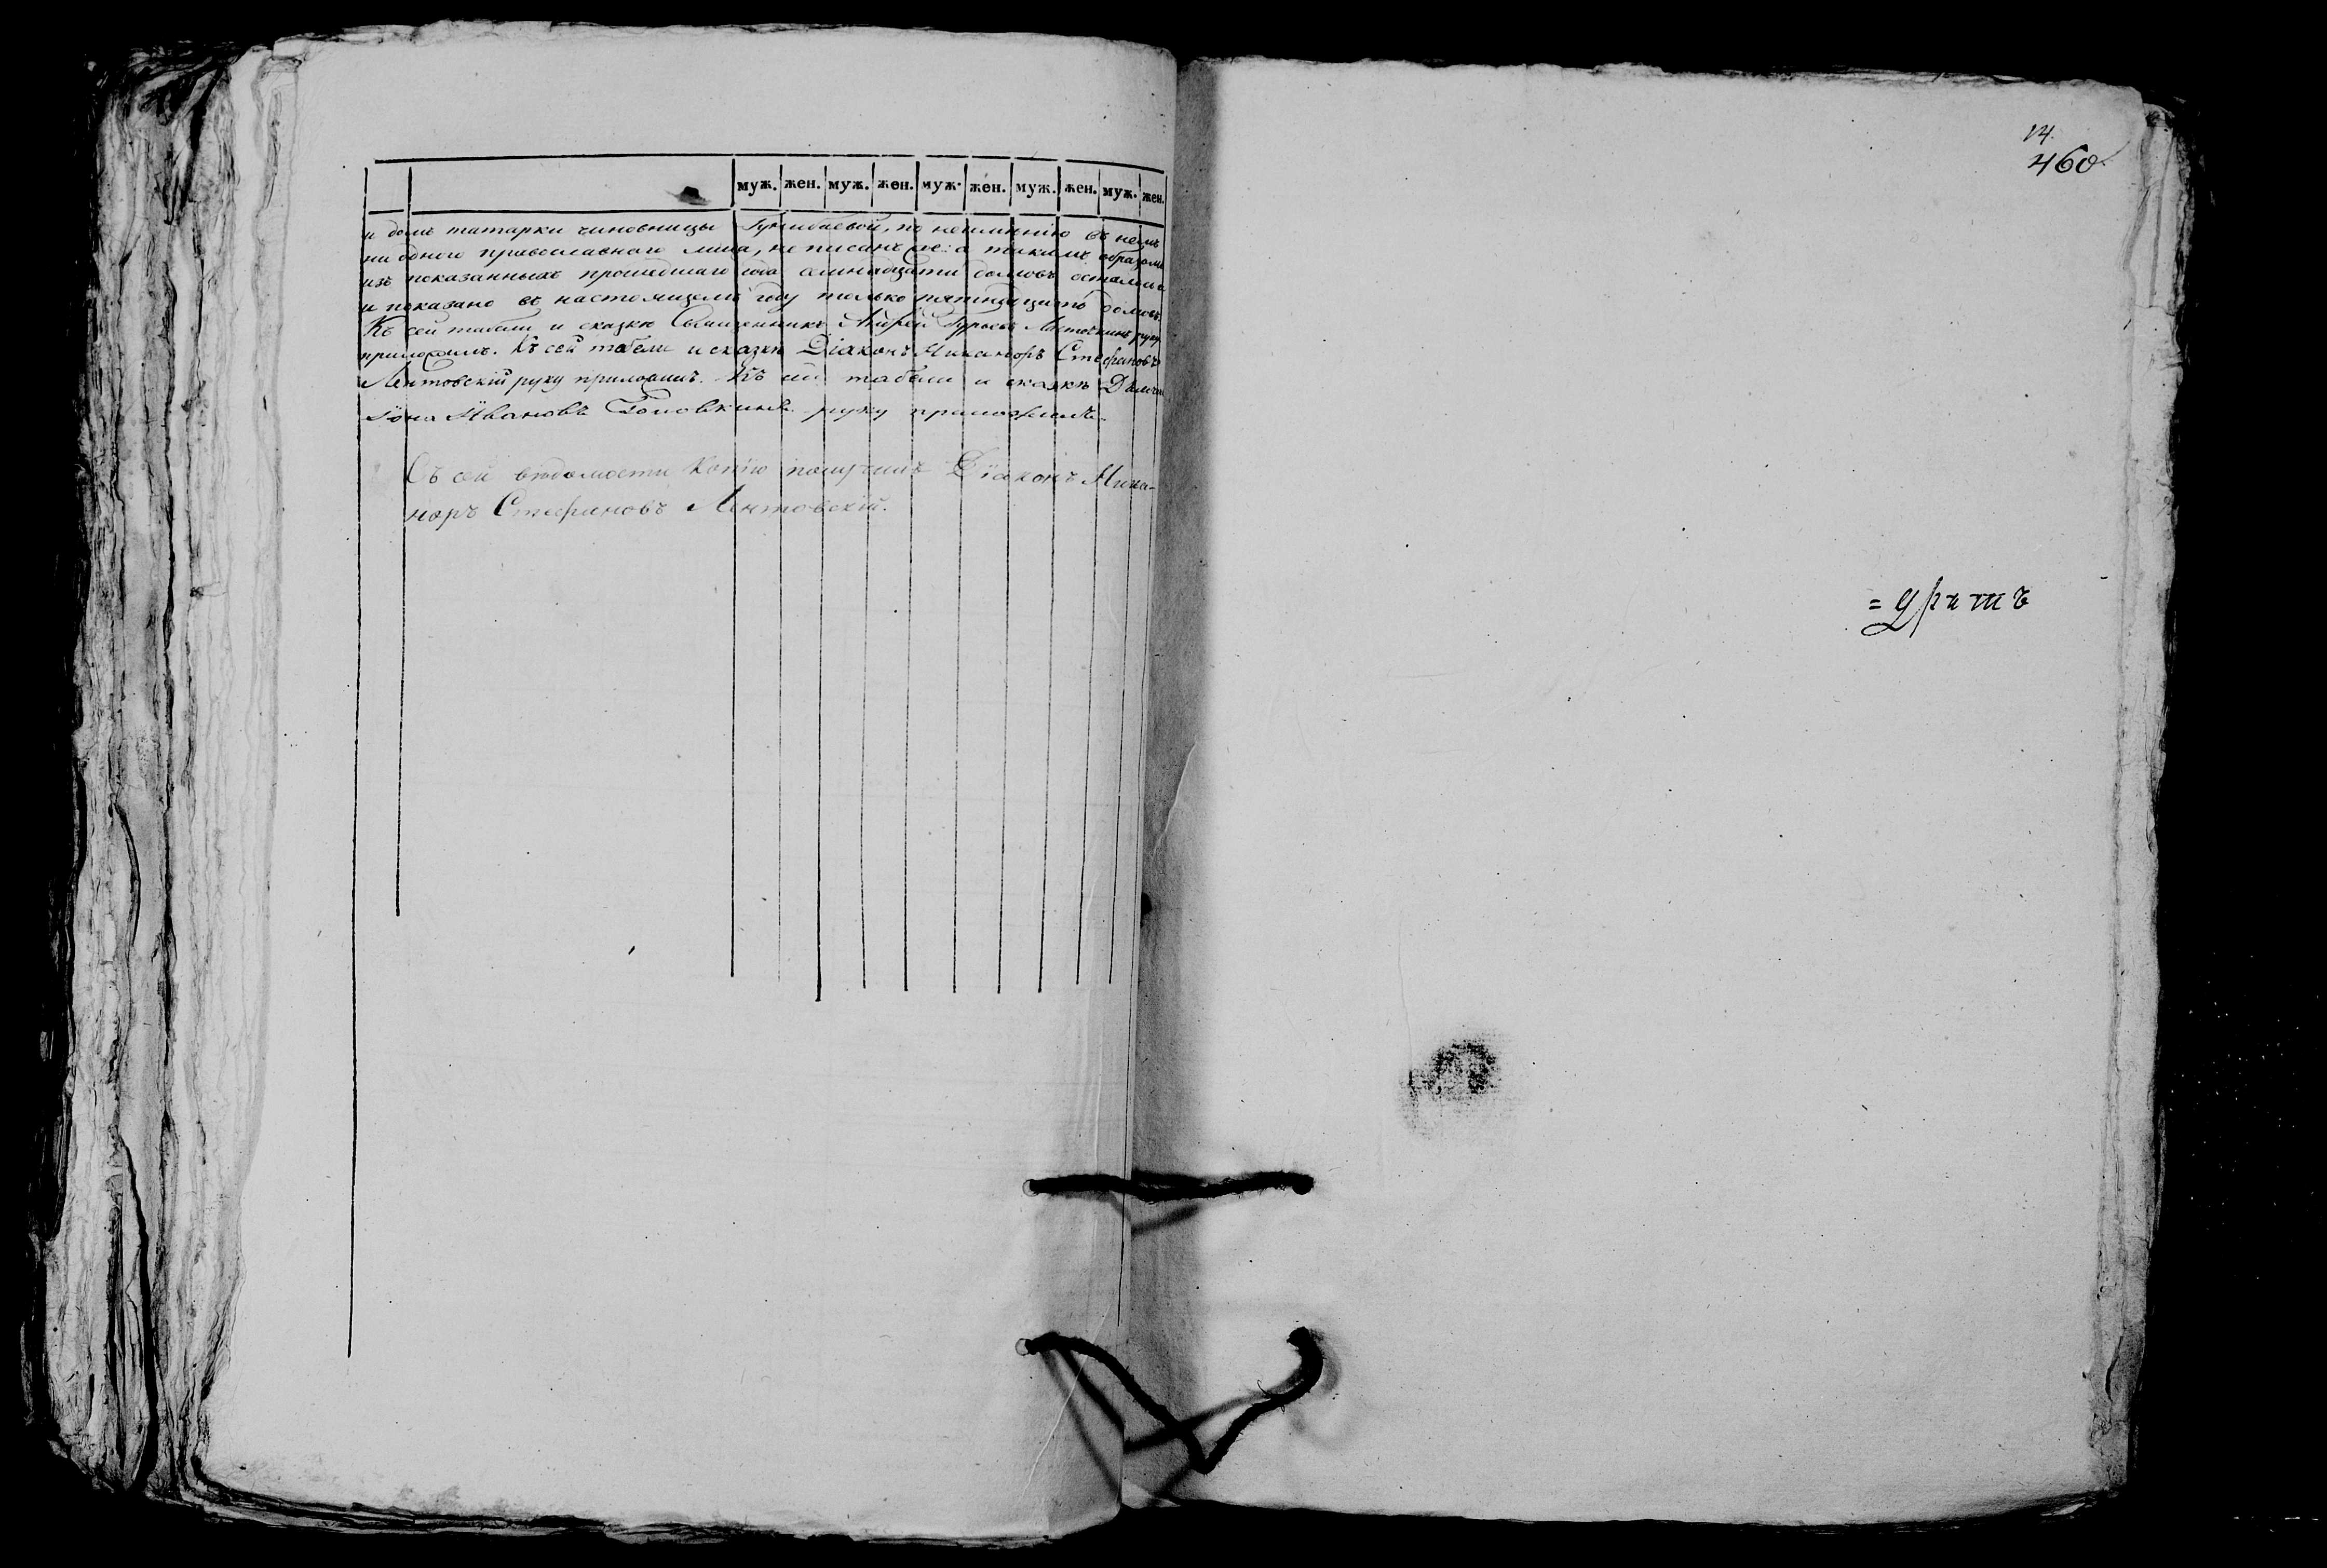 муж. жен. муж. жен. муж. жен. муж. жен. муж. жен.
и домъ татарки чиновницы по неимѣнію въ немъ
ни одного православнаго лица, не писанъ же: а такимъ образомъ
изъ показанныхъ прошедшаго года домовъ осталось
и показано въ настоящемъ году только пятнадцать домовъ.
Къ сей табели и сказкѣ Священникъ Андрей Гурьевъ руку
приложилъ. Къ сей табели и сказкѣ Діаконъ Никаноръ Стефановъ
Лентовскій руку приложилъ. Къ сей табели и сказкѣ Дьячекъ
Іона Ивановъ Головкинъ руку приложилъ.
Съ сей вѣдомости копію получилъ Діаконъ Ника-
норъ Стефановъ Лентовскій.
14.
460.